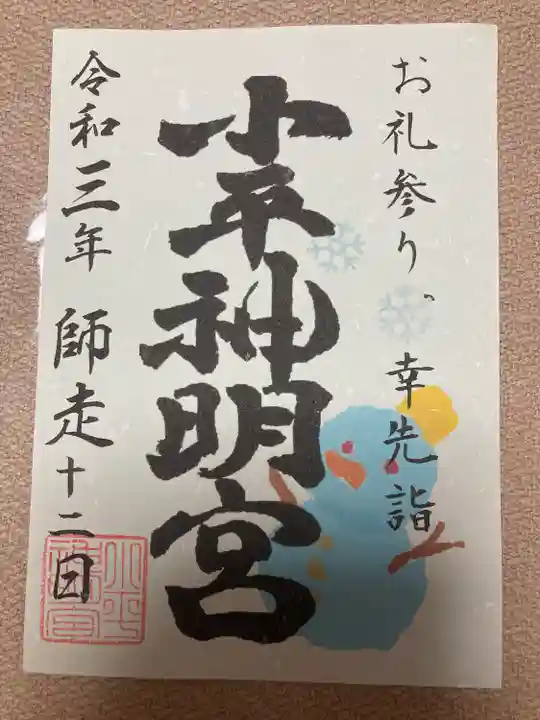 お礼参り。幸先詣
小平神明宮
令和三年 師走十二日